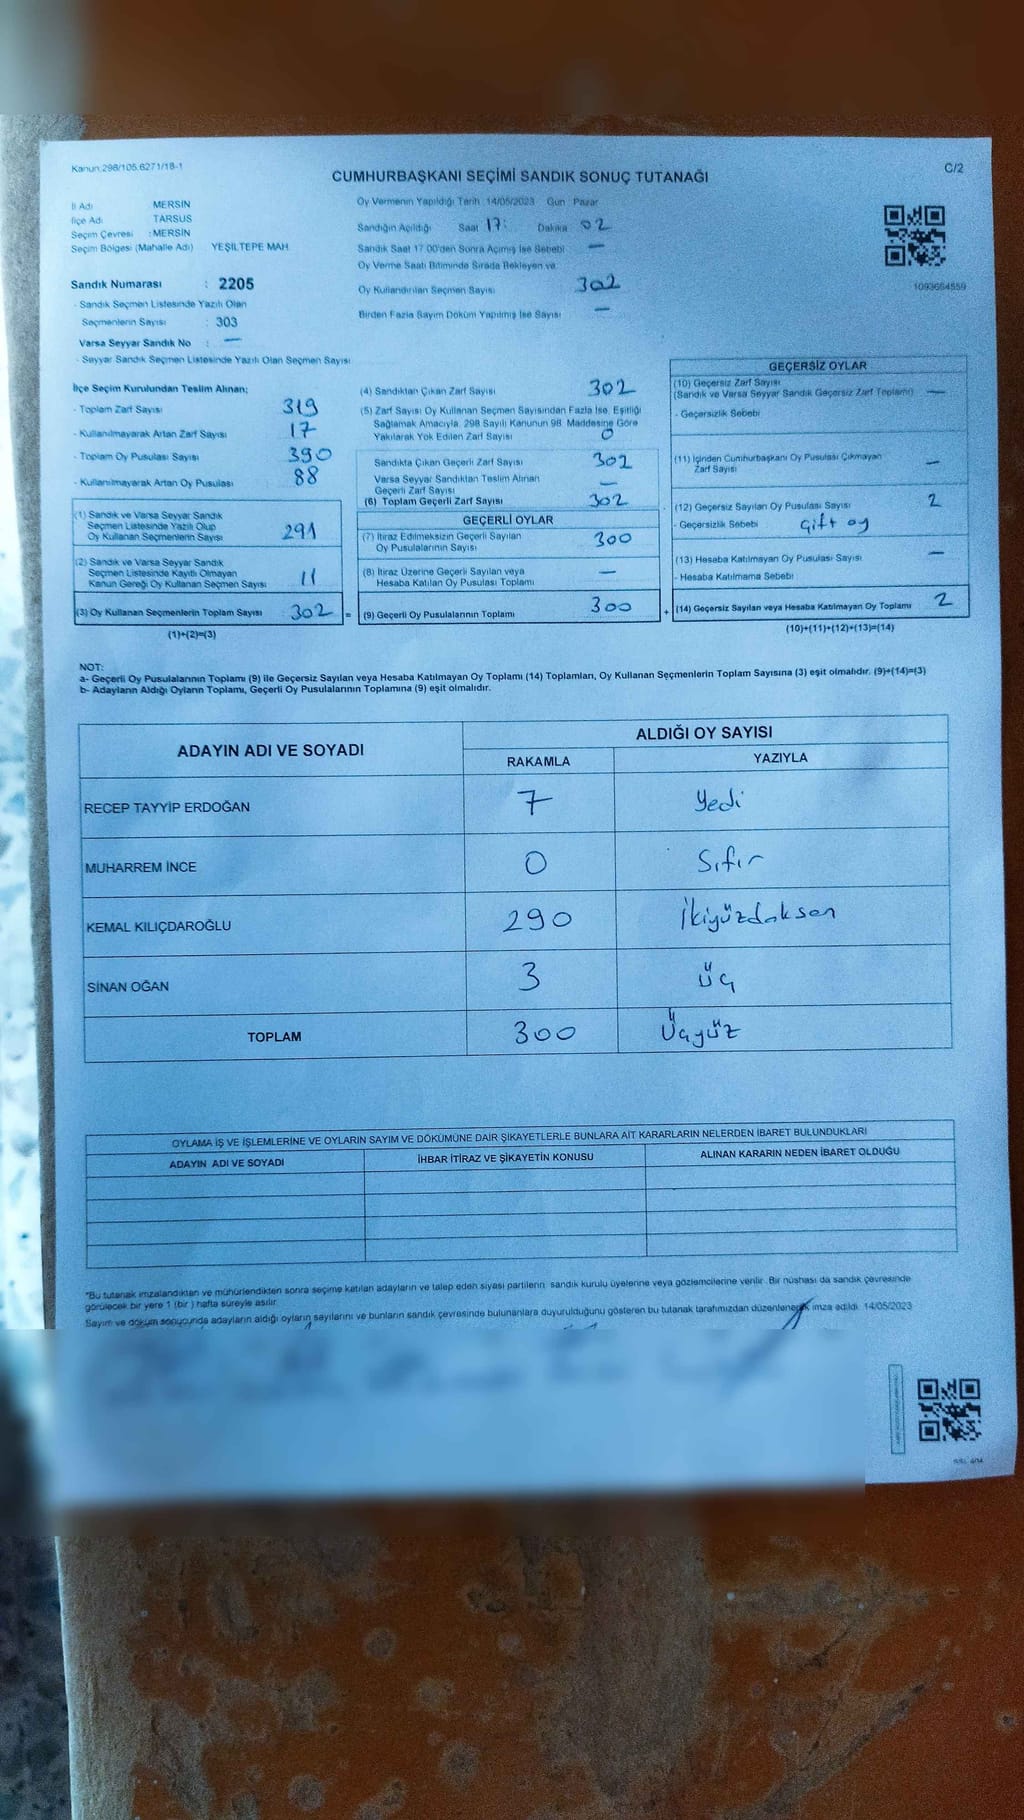 Kanun:298/105,6271/18-1
C/2
CUMHURBAŞKANI SEÇİMİ SANDIK SONUÇ TUTANAĞI
İl Adı MERSİN
İlçe Adı TARSUS
Seçim Çevresi : MERSİN
Seçim Bölgesi (Mahalle Adı) YEŞİLTEPE MAH.
Sandık Numarası : 2205
- Sandık Seçmen Listesinde Yazılı Olan
Seçmenlerin Sayısı : 303
Varsa Seyyar Sandık No : —
- Seyyar Sandık Seçmen Listesinde Yazılı Olan Seçmen Sayısı
Oy Vermenin Yapıldığı Tarih : 14/05/2023 Gün : Pazar
Sandığın Açıldığı Saat 17: Dakika 02
Sandık Saat 17.00'den Sonra Açılmış İse Sebebi —
Oy Verme Saati Bitiminde Sırada Bekleyen ve
Oy Kullandırılan Seçmen Sayısı 302
Birden Fazla Sayım Döküm Yapılmış İse Sayısı —
1093664559
İlçe Seçim Kurulundan Teslim Alınan;
- Toplam Zarf Sayısı 319
- Kullanılmayarak Artan Zarf Sayısı 17
- Toplam Oy Pusulası Sayısı 390
- Kullanılmayarak Artan Oy Pusulası 88
(1) Sandık ve Varsa Seyyar Sandık
Seçmen Listesinde Yazılı Olup
Oy Kullanan Seçmenlerin Sayısı 291
(2) Sandık ve Varsa Seyyar Sandık
Seçmen Listesinde Kayıtlı Olmayan
Kanun Gereği Oy Kullanan Seçmen Sayısı 11
(3) Oy Kullanan Seçmenlerin Toplam Sayısı 302 =
(1)+(2)=(3)
(4) Sandıktan Çıkan Zarf Sayısı 302
(5) Zarf Sayısı Oy Kullanan Seçmen Sayısından Fazla İse, Eşitliği
Sağlamak Amacıyla, 298 Sayılı Kanunun 98. Maddesine Göre
Yakılarak Yok Edilen Zarf Sayısı 0
Sandıkta Çıkan Geçerli Zarf Sayısı 302
Varsa Seyyar Sandıktan Teslim Alınan
Geçerli Zarf Sayısı —
(6) Toplam Geçerli Zarf Sayısı 302
GEÇERLİ OYLAR
(7) İtiraz Edilmeksizin Geçerli Sayılan
Oy Pusulalarının Sayısı 300
(8) İtiraz Üzerine Geçerli Sayılan veya
Hesaba Katılan Oy Pusulası Toplamı —
(9) Geçerli Oy Pusulalarının Toplamı 300 +
GEÇERSİZ OYLAR
(10) Geçersiz Zarf Sayısı
(Sandık ve Varsa Seyyar Sandık Geçersiz Zarf Toplamı) —
- Geçersizlik Sebebi
(11) İçinden Cumhurbaşkanı Oy Pusulası Çıkmayan
Zarf Sayısı —
(12) Geçersiz Sayılan Oy Pusulası Sayısı 2
- Geçersizlik Sebebi Çift oy
(13) Hesaba Katılmayan Oy Pusulası Sayısı —
- Hesaba Katılmama Sebebi
(14) Geçersiz Sayılan veya Hesaba Katılmayan Oy Toplamı 2
(10)+(11)+(12)+(13)=(14)
NOT:
a- Geçerli Oy Pusulalarının Toplamı (9) ile Geçersiz Sayılan veya Hesaba Katılmayan Oy Toplamı (14) Toplamları, Oy Kullanan Seçmenlerin Toplam Sayısına (3) eşit olmalıdır. (9)+(14)=(3)
b- Adayların Aldığı Oyların Toplamı, Geçerli Oy Pusulalarının Toplamına (9) eşit olmalıdır.
ADAYIN ADI VE SOYADI ALDIĞI OY SAYISI
RAKAMLA YAZIYLA
RECEP TAYYİP ERDOĞAN 7 Yedi
MUHARREM İNCE 0 Sıfır
KEMAL KILIÇDAROĞLU 290 İkiyüzdoksan
SİNAN OĞAN 3 üç
TOPLAM 300 Üçyüz
OYLAMA İŞ VE İŞLEMLERİNE VE OYLARIN SAYIM VE DÖKÜMÜNE DAİR ŞİKAYETLERLE BUNLARA AİT KARARLARIN NELERDEN İBARET BULUNDUKLARI
ADAYIN ADI VE SOYADI İHBAR İTİRAZ VE ŞİKAYETİN KONUSU ALINAN KARARIN NEDEN İBARET OLDUĞU
*Bu tutanak imzalandıktan ve mühürlendikten sonra seçime katılan adayların ve talep eden siyasi partilerin, sandık kurulu üyelerine veya gözlemcilerine verilir. Bir nüshası da sandık çevresinde
görülecek bir yere 1 (bir) hafta süreyle asılır.
Sayım ve döküm sonucunda adayların aldığı oyların sayılarını ve bunların sandık çevresinde bulunanlara duyurulduğunu gösteren bu tutanak tarafımızdan düzenlenerek imza edildi. 14/05/2023